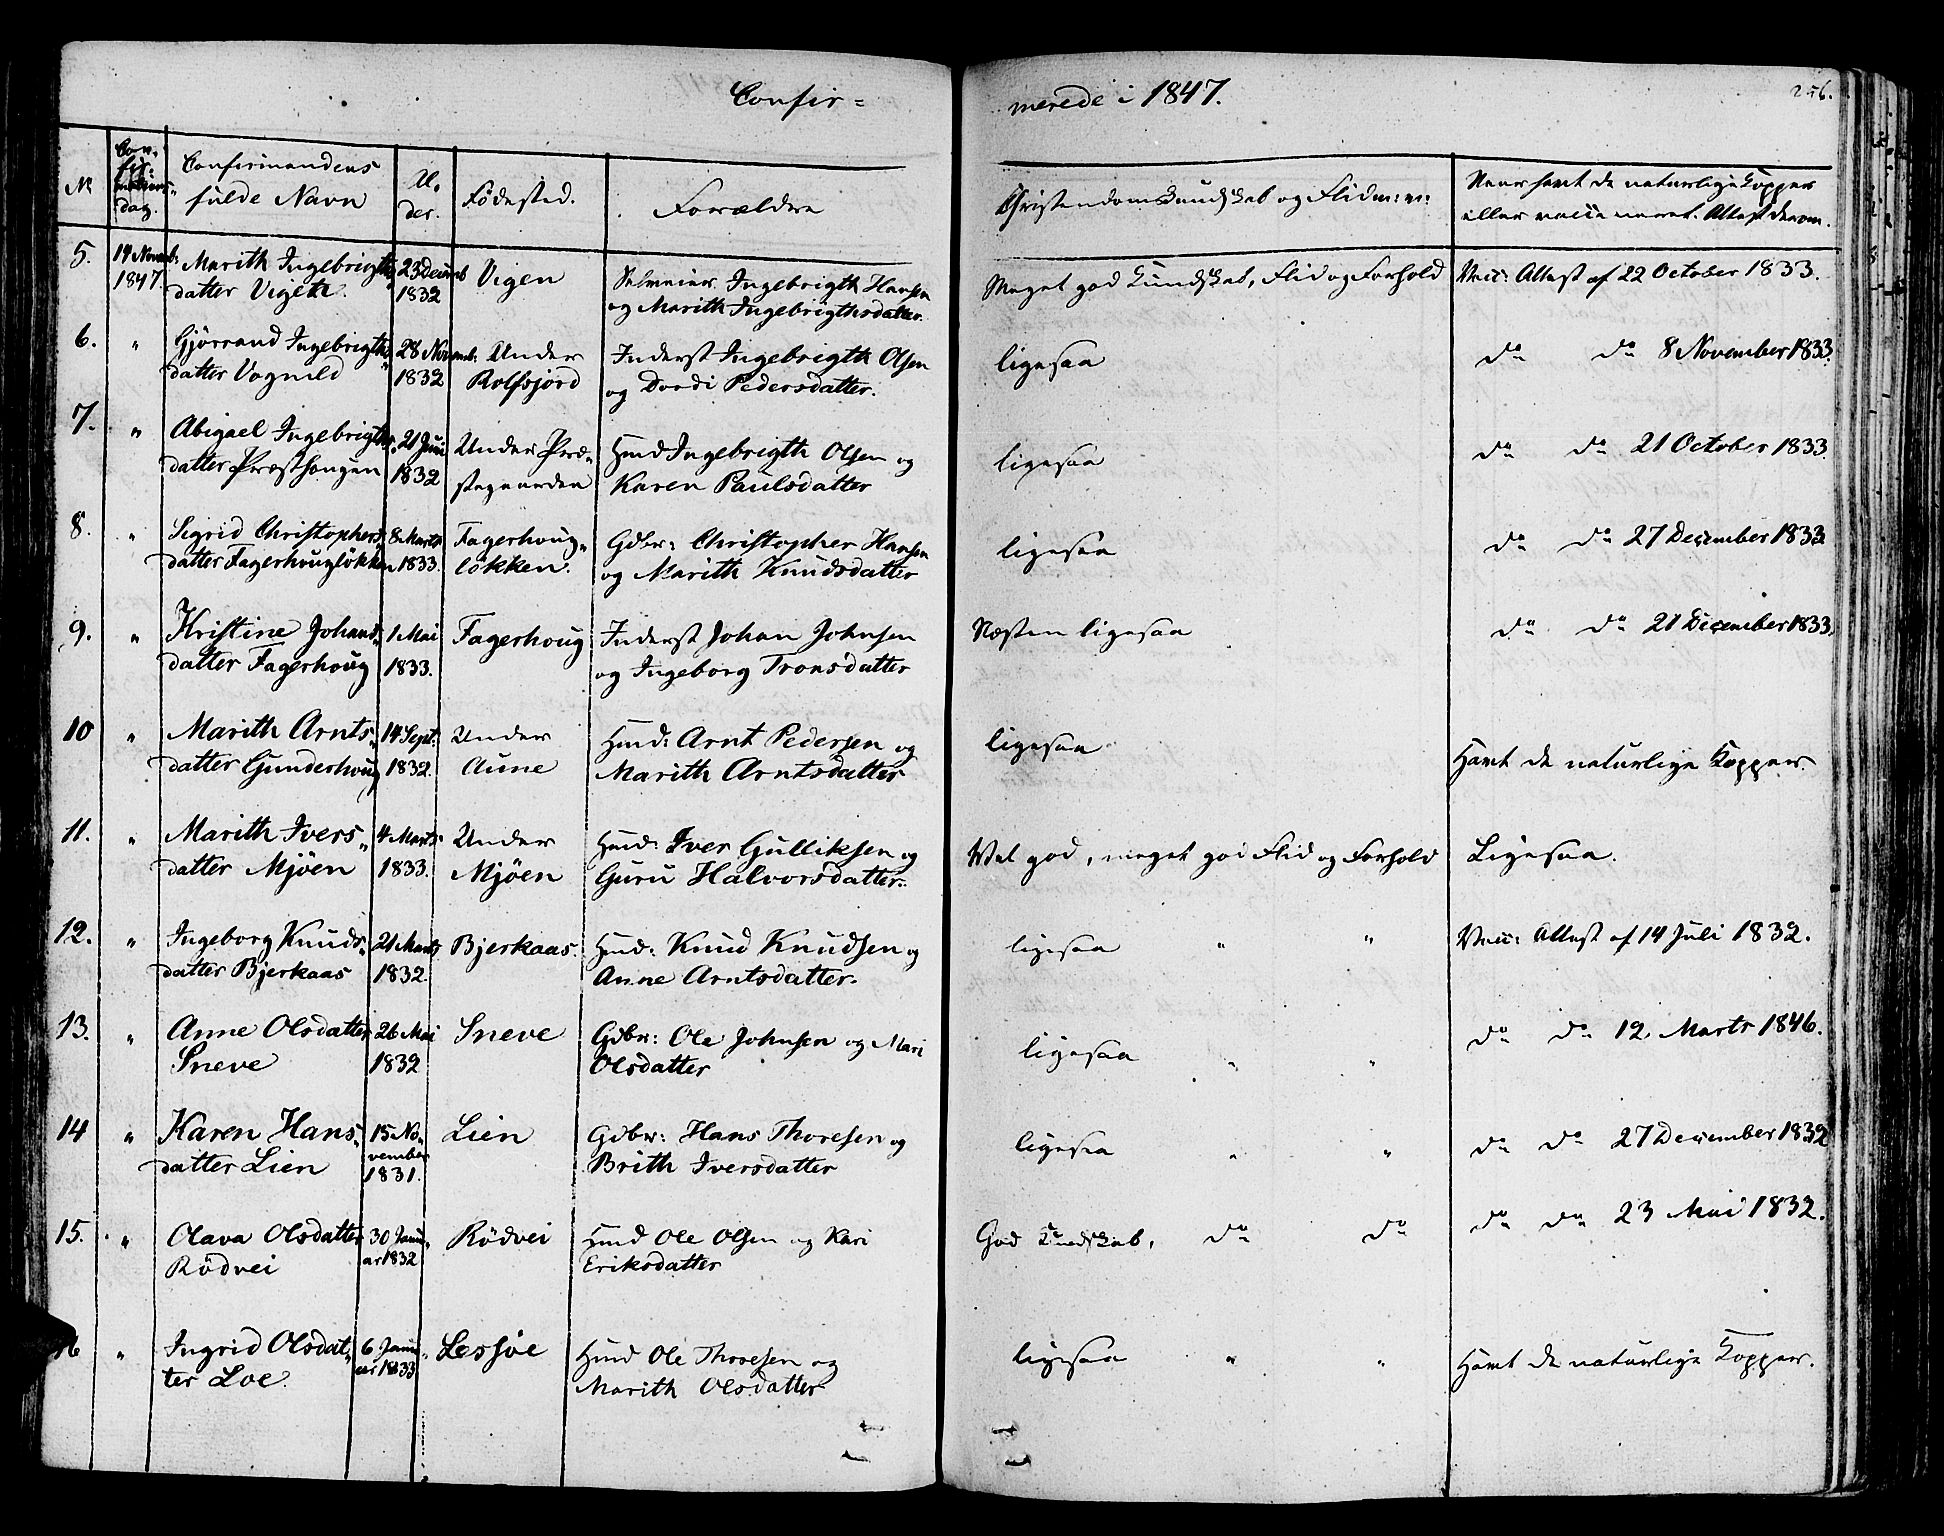 Confir=
merede i 1847.
256.
№
Con-
fir-
mations-
dag.
Confirmandens
fulde Navn
Al-
der.
Fødested.
Forældre
Christendomskundskab og Flid m: m:
Naar havt de naturlige Kopper
eller vaccineret. Attest derom.
5.
14 Novemb:
1847
Marith Ingebrigths
datter Vigen.
23 Decemb
1832
Vigen
Selveier Ingebrigth Hansen
og Marith Ingebrigthsdatter.
Meget god Kundskab, Flid og Forhold
Vacc: Attest af 22 October 1833.
6.
"
Gjørrand Ingebrigths
datter Vognild
28 Novemb:
1832
Under
Rolfsjord
Inderst Ingebrigth Olsen
og Dordi Pedersdatter.
ligesaa
do do 8 November 1833.
7.
"
Abigael Ingebrigths
datter Præsthongen
21 Juni
1832
Under Præ-
stegaarden
Hmd Ingebrigth Olsen og
Karen Paulsdatter
ligesaa
do do 21 October 1833.
8.
"
Sigrid Christophers
datter Fagerhougløkken
8 Marts
1833.
Fagerhoug-
løkken.
Gdbr: Christopher Hansen
og Marith Knudsdatter
ligesaa
do do 27 December 1833
9.
"
Kristine Johans
datter Fagerhoug
1 Mai
1833.
Fagerhoug
Inderst Johan Johnsen
og Ingeborg Tronsdatter
Næsten ligesaa
do do 21 December 1833.
10
"
Marith Arnts-
datter Gunderhoug
14 Sept:
1832.
Under
Aune
Hmd: Arnt Pedersen og
Marith Arntsdatter
ligesaa
Havt de naturlige Kopper.
11.
"
Marith Ivers-
datter Mjøen
4 Marts
1833.
Under
Mjøen
Hmd: Iver Gulliksen og
Guru Halvorsdatter.
Vel god, meget god Flid og Forhold
Ligesaa.
12.
"
Ingeborg Knuds-
datter Bjerkaas
21 Marts
1832.
Bjerkaas.
Hmd: Knud Knudsen og
Anne Arntsdatter.
ligesaa " "
Vacc: Attest af 14 Juli 1832.
13.
"
Anne Olsdatter
Sneve
26 Mai
1832
Sneve
Gdbr: Ole Johnsen og Mari
Olsdatter
ligesaa " "
do do 12. Marts 1846.
14
"
Karen Hans-
datter Lien
15 No-
vember
1831.
Lien
Gdbr: Hans Thoresen og
Brith Iversdatter
ligesaa " "
do do 27 December 1832
15.
"
Olava Olsdatter
Rødvei
30 Janu-
ar 1832
Rødvei
Hmd Ole Olsen og Kari
Eriksdatter
God Kundskab, do do
do do 23 Mai 1832.
16
"
Ingrid Olsdat-
ter Loe.
6 Janu-
ar 1833
Lessøe
Hmd Ole Thoresen og
Marith Olsdatter
ligesaa " "
Havt de naturlige Kopper.